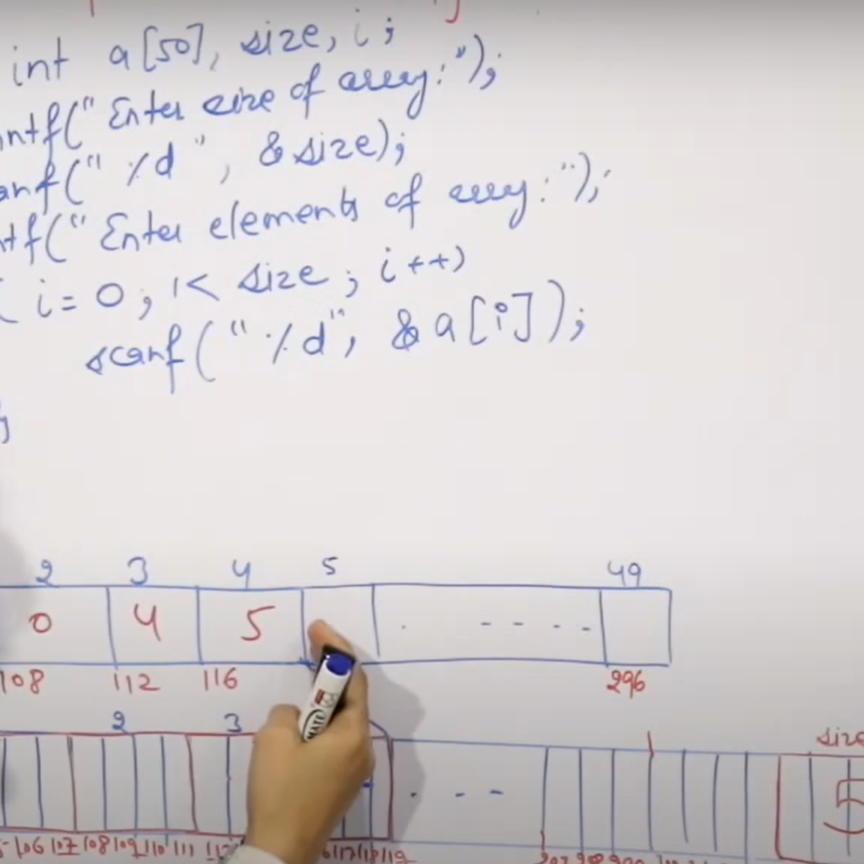 int a[50], size, i;
ntf("Enter size of array:");
anf("%d", &size);
tf("Enter elements of array:");
( i=0; i< size; i++)
scanf("%d", &a[i]);
2 3 4 5 49
0 4 5 . - - - -
108 112 116 296
2 3 size
. - - - 5
106 107 108 109 110 111